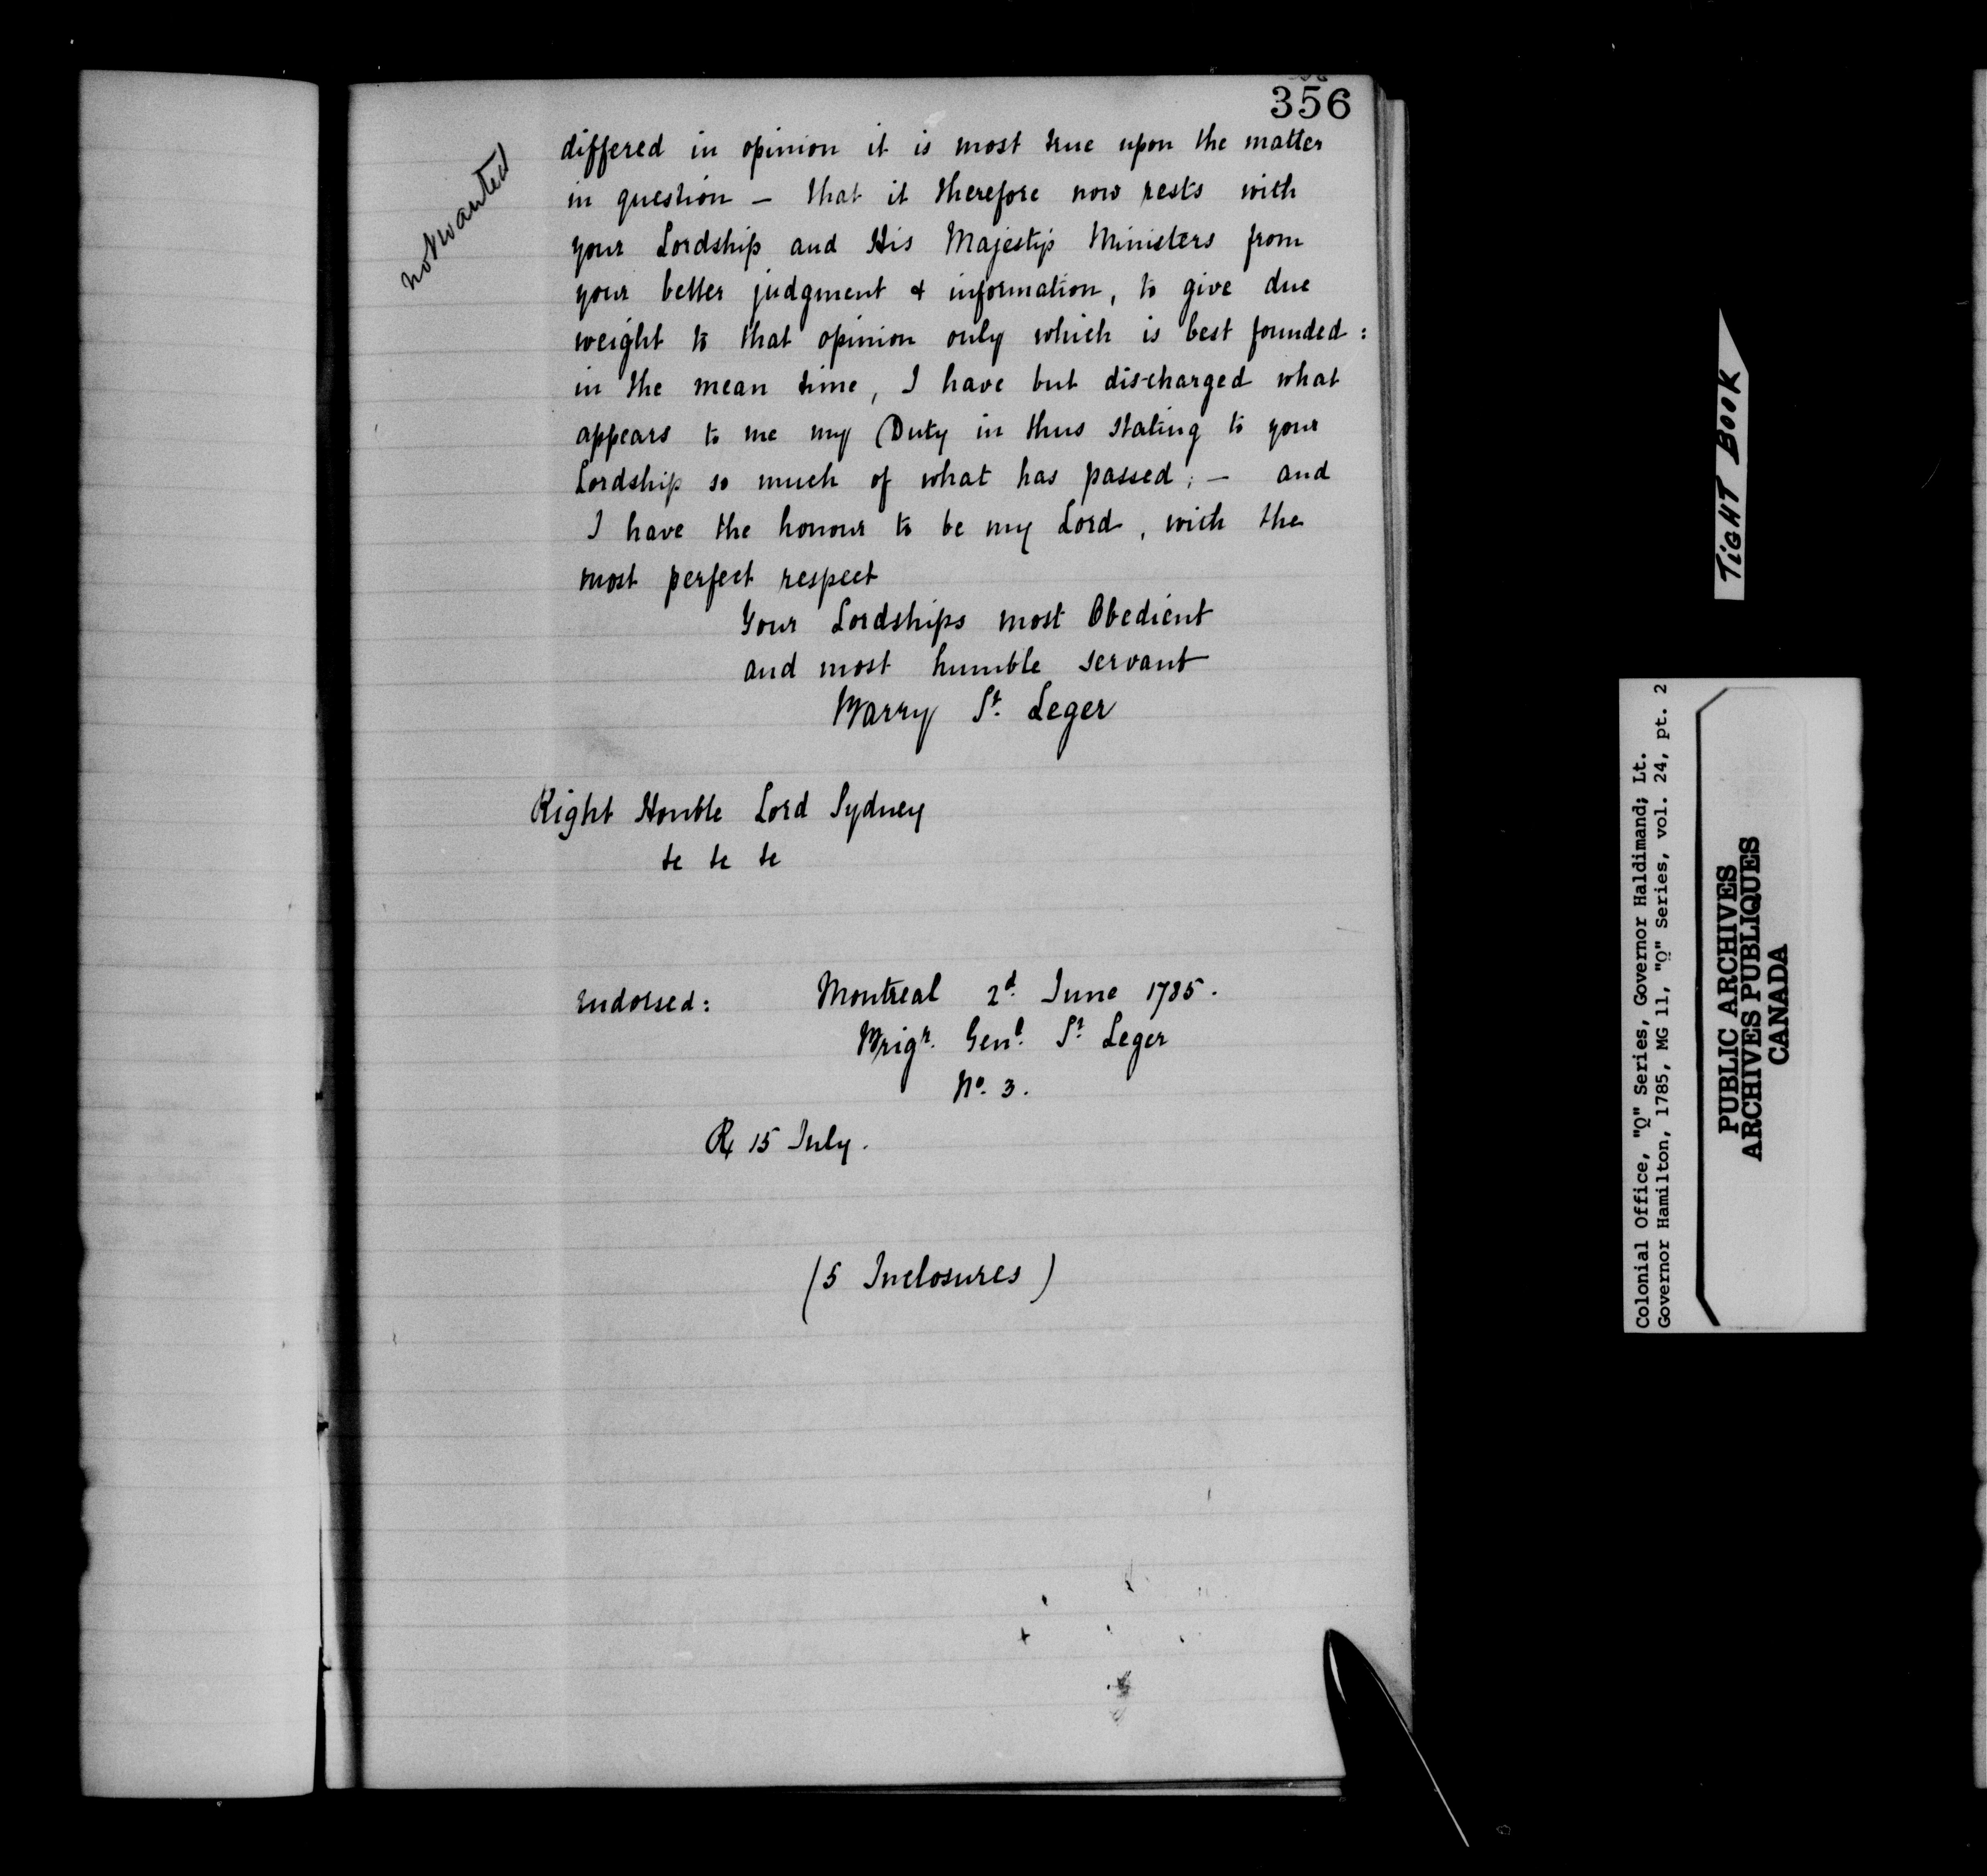 356
not wanted
differed in opinion it is most true upon the matter
in question – that it therefore now rests with
your Lordship and His Majesty's Ministers from
your better judgment & information, to give due
weight to that opinion only which is best founded:
in the mean time, I have but discharged what
appears to me my Duty in thus stating to your
Lordship so much of what has passed; – and
I have the honour to be my Lord, with the
most perfect respect
Your Lordships most Obedient
and most humble servant
Barry St. Leger
Right Honble Lord Sydney
&c &c &c
Endorsed: Montreal 2d. June 1785.
Brigr. Genl. St. Leger
No. 3.
R 15 July.
(5 Inclosures)
TIGHT BOOK
Colonial Office, "Q" Series, Governor Haldimand; Lt.
Governor Hamilton, 1785, MG 11, "Q" Series, vol. 24, pt. 2
PUBLIC ARCHIVES
ARCHIVES PUBLIQUES
CANADA